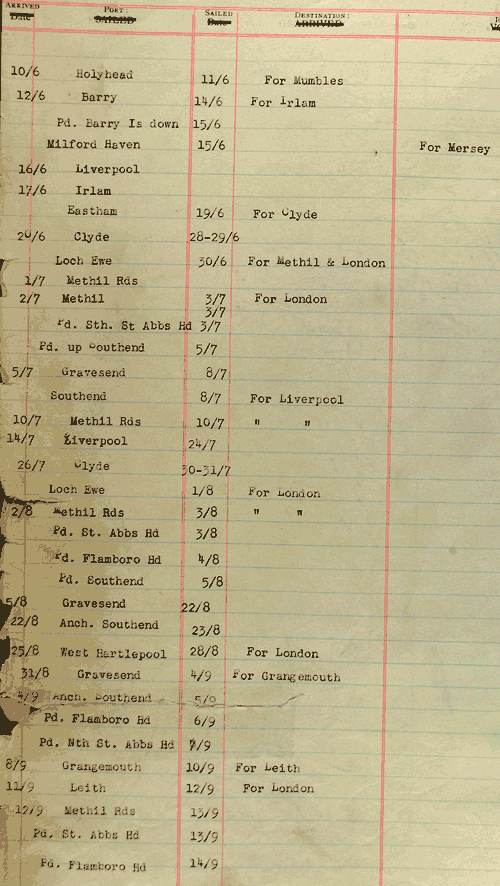 ARRIVED PORT: SAILED DESTINATION:
Date SAILED Date ARRIVED
10/6 Holyhead 11/6 For Mumbles
12/6 Barry 14/6 For Irlam
Pd. Barry Is down 15/6
Milford Haven 15/6 For Mersey
16/6 Liverpool
17/6 Irlam
Eastham 19/6 For Clyde
20/6 Clyde 28-29/6
Loch Ewe 30/6 For Methil & London
1/7 Methil Rds
2/7 Methil 3/7 For London
3/7
Pd. Sth. St Abbs Hd 3/7
Pd. up Southend 5/7
5/7 Gravesend 8/7
Southend 8/7 For Liverpool
10/7 Methil Rds 10/7 " "
14/7 Liverpool 24/7
26/7 Clyde 30-31/7
Loch Ewe 1/8 For London
2/8 Methil Rds 3/8 " "
Pd. St. Abbs Hd 3/8
Pd. Flamboro Hd 4/8
Pd. Southend 5/8
5/8 Gravesend 22/8
22/8 Anch. Southend 23/8
25/8 West Hartlepool 28/8 For London
31/8 Gravesend 4/9 For Grangemouth
4/9 Anch. Southend 5/9
Pd. Flamboro Hd 6/9
Pd. Nth St. Abbs Hd 7/9
8/9 Grangemouth 10/9 For Leith
11/9 Leith 12/9 For London
12/9 Methil Rds 13/9
Pd. St. Abbs Hd 13/9
Pd. Flamboro Hd 14/9